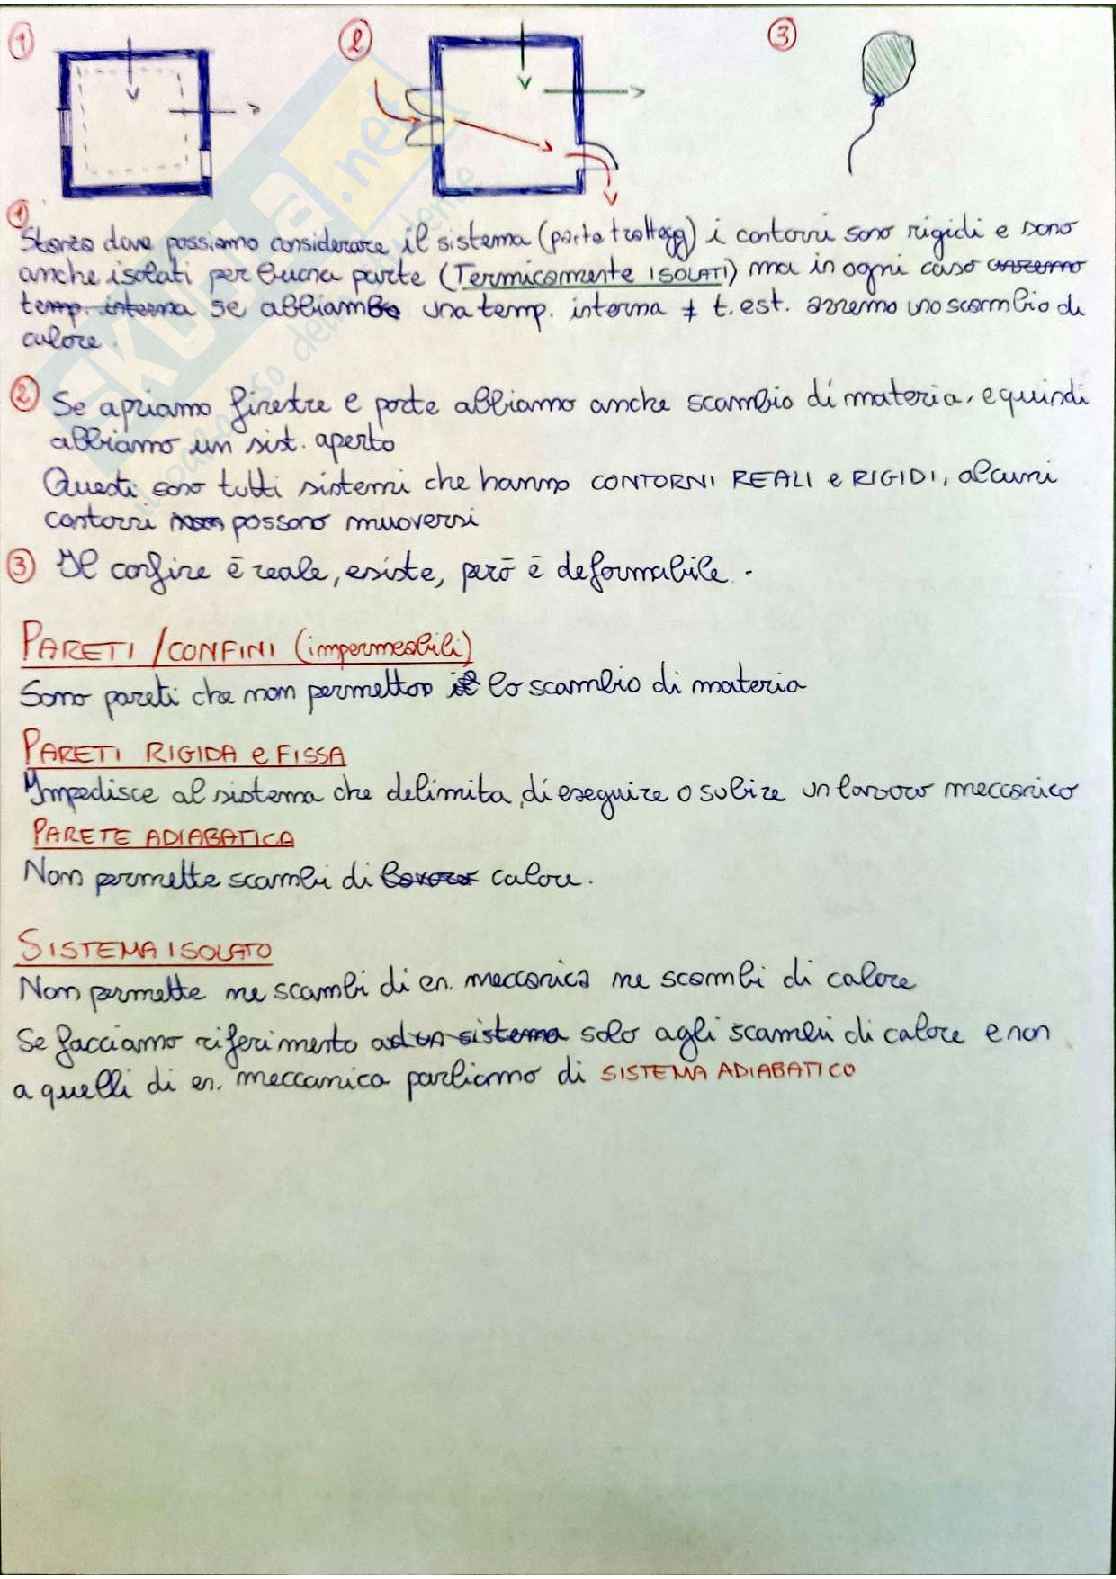 1 2 3
1
Stanza dove possiamo considerare il sistema (parte tratteg) i contorni sono rigidi e sono
anche isolati per buona parte (Termicamente ISOLATI) ma in ogni caso avremo
temp. interna se abbiamo una temp. interna ≠ t. est. avremo uno scambio di
calore.
2 Se apriamo finestre e porte abbiamo anche scambio di materia, e quindi
abbiamo un sist. aperto
Questi sono tutti sistemi che hanno CONTORNI REALI e RIGIDI, alcuni
contorni non possono muoversi
3 Il confine è reale, esiste, però è deformabile.
PARETI / CONFINI (impermeabili)
Sono pareti che non permettono il lo scambio di materia
PARETI RIGIDA e FISSA
Impedisce al sistema che delimita, di eseguire o subire un lavoro meccanico
PARETE ADIABATICA
Non permette scambi di lavoro calore.
SISTEMA ISOLATO
Non permette ne scambi di en. meccanica ne scambi di calore
Se facciamo riferimento ad un sistema solo agli scambi di calore e non
a quelli di en. meccanica parliamo di SISTEMA ADIABATICO